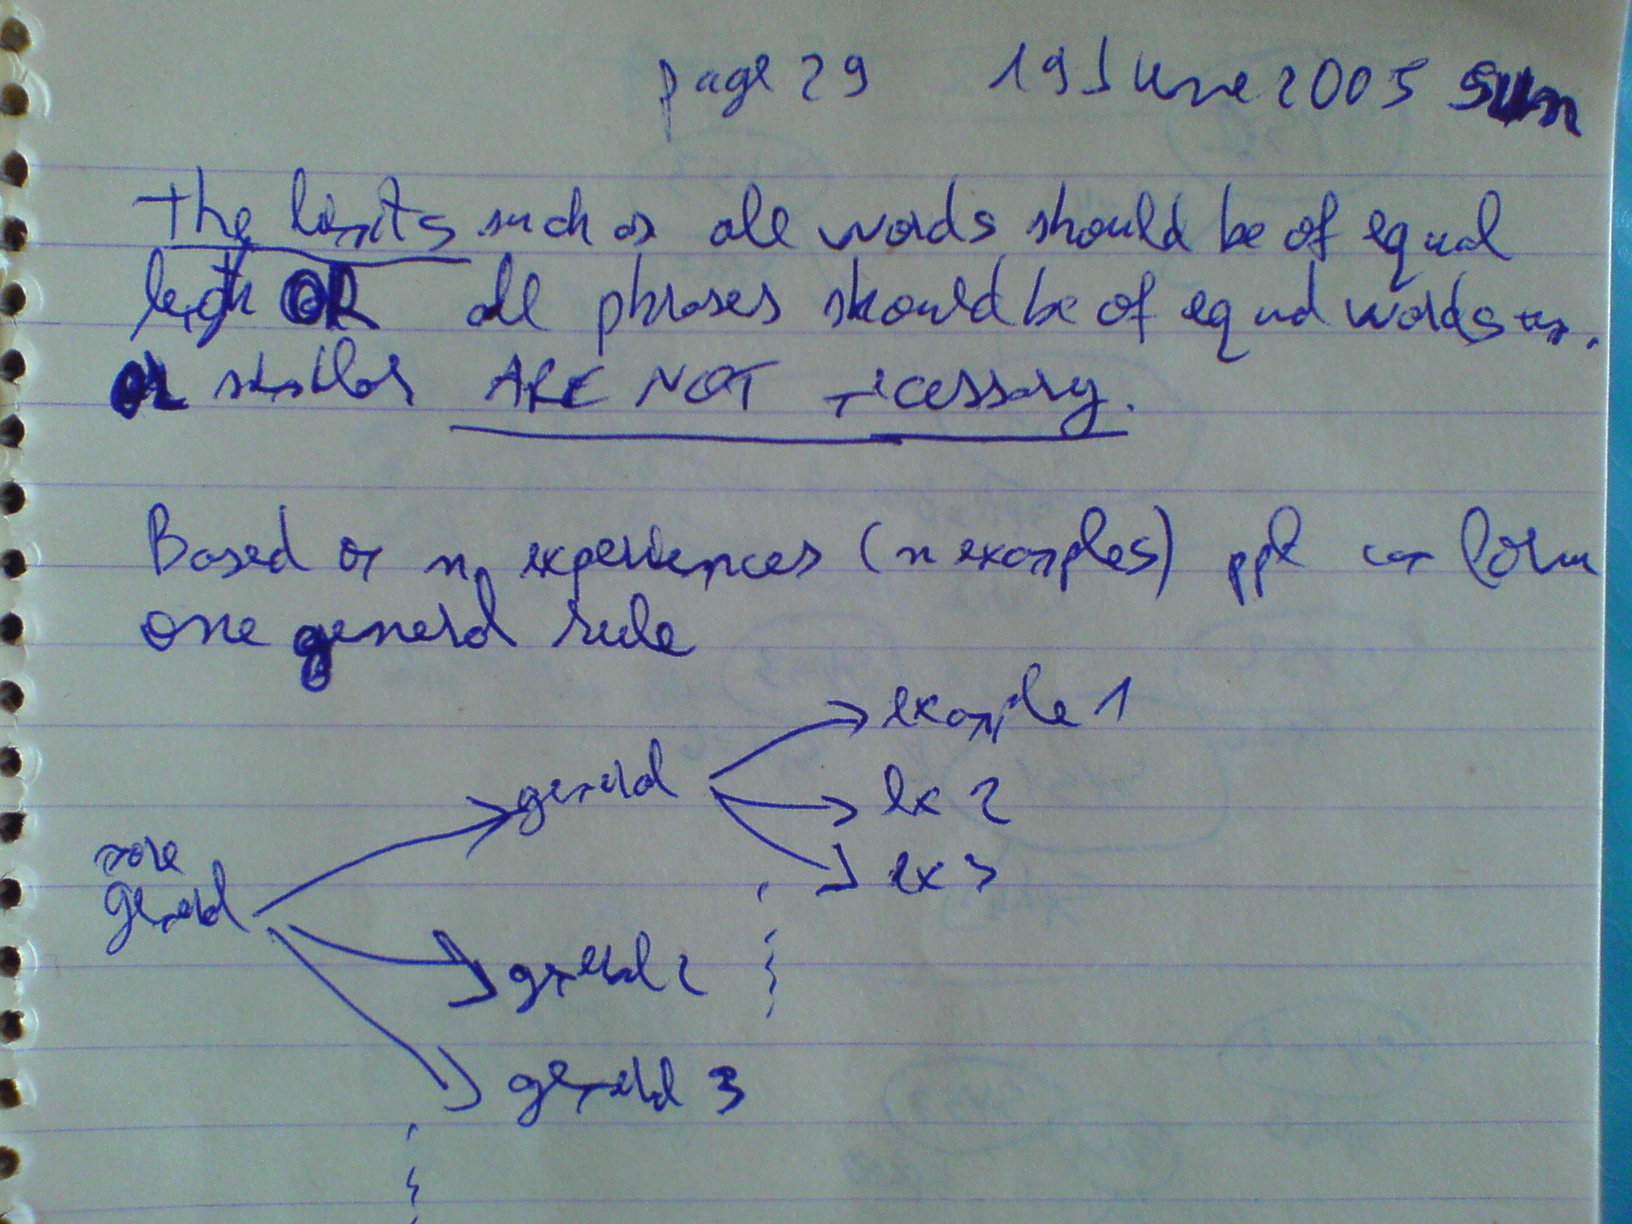 page 29 19 June 2005 Sun
The limits such as all words should be of equal
length OR all phrases should be of equal words
or similar ARE NOT necessary.
Based on n experiences (n examples) ppl can form
one general rule
example 1
general
ex 2
more
ex 3
general
general 2
general 3